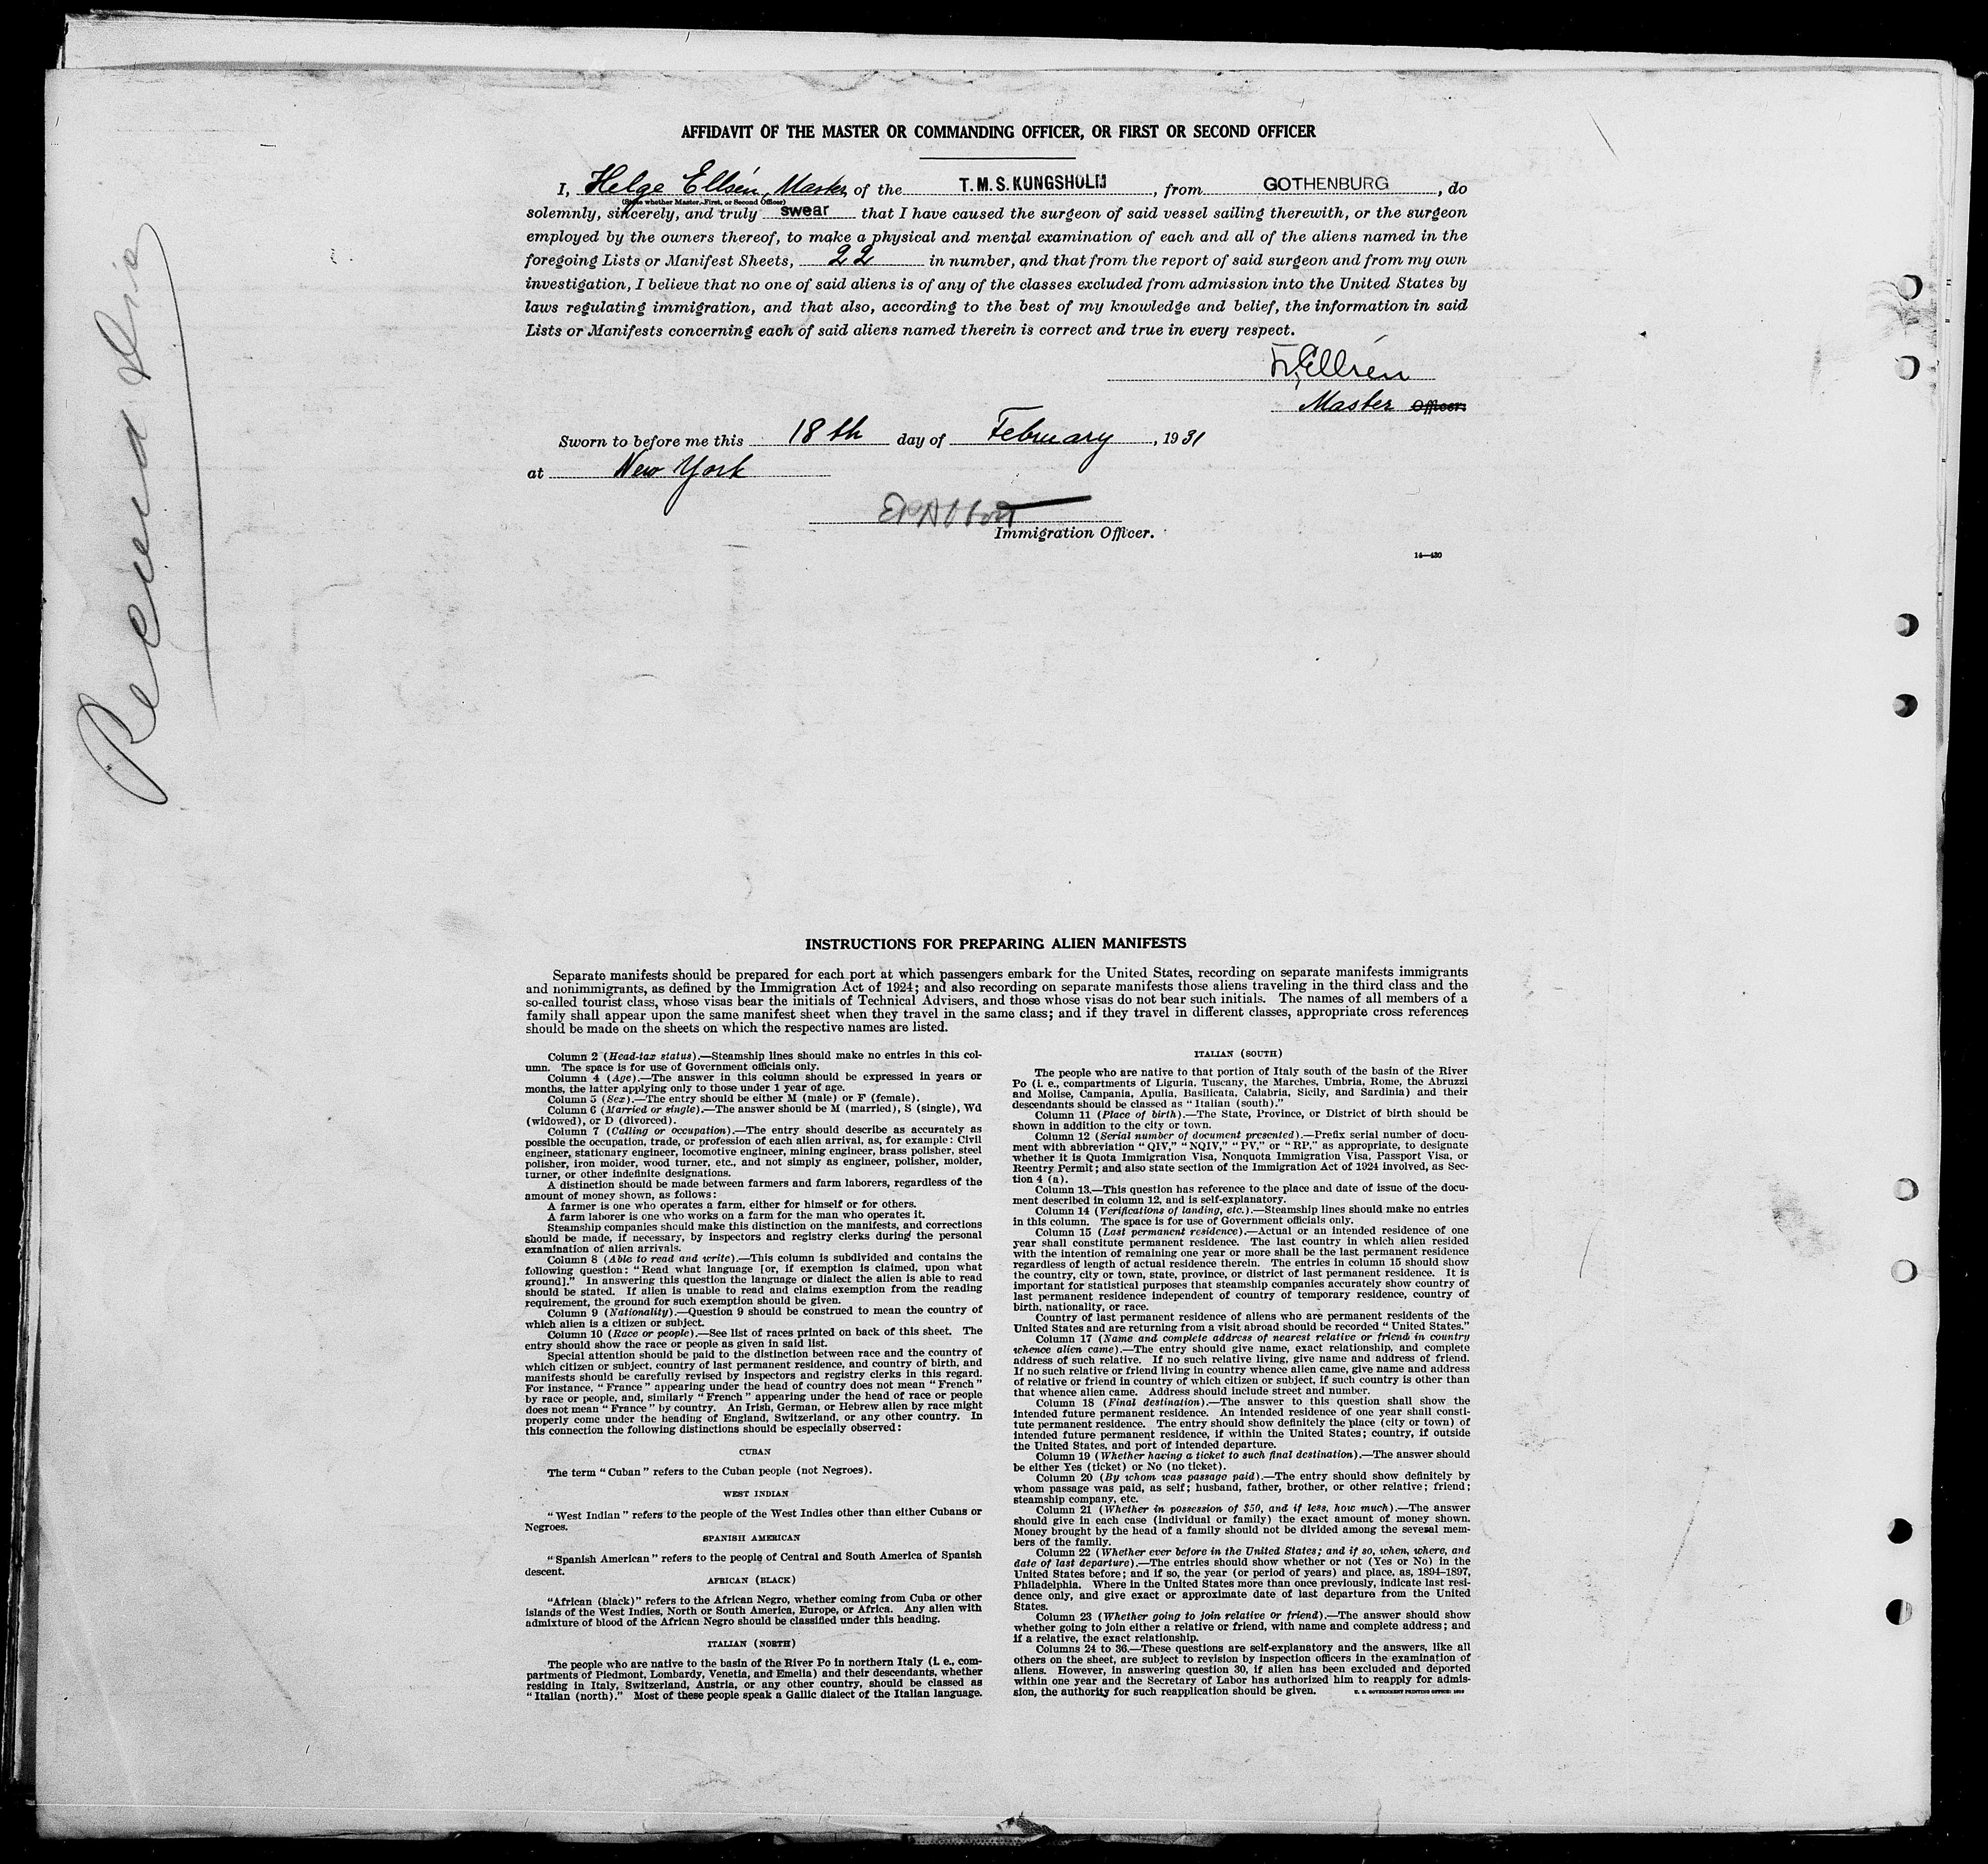 AFFIDAVIT OF THE MASTER OR COMMANDING OFFICER, OR FIRST OR SECOND OFFICER
I, Helge Ellsén, Master, of the T. M. S. KUNGSHOLM, from GOTHENBURG, do
(State whether Master, First, or Second Officer)
solemnly, sincerely, and truly swear that I have caused the surgeon of said vessel sailing therewith, or the surgeon
employed by the owners thereof, to make a physical and mental examination of each and all of the aliens named in the
foregoing Lists or Manifest Sheets, 22 in number, and that from the report of said surgeon and from my own
investigation, I believe that no one of said aliens is of any of the classes excluded from admission into the United States by
laws regulating immigration, and that also, according to the best of my knowledge and belief, the information in said
Lists or Manifests concerning each of said aliens named therein is correct and true in every respect.
Ellsén
Master Officer.
Sworn to before me this 18th day of February, 1931
at New York
Immigration Officer.
14—430
INSTRUCTIONS FOR PREPARING ALIEN MANIFESTS
Separate manifests should be prepared for each port at which passengers embark for the United States, recording on separate manifests immigrants
and nonimmigrants, as defined by the Immigration Act of 1924; and also recording on separate manifests those aliens traveling in the third class and the
so-called tourist class, whose visas bear the initials of Technical Advisers, and those whose visas do not bear such initials. The names of all members of a
family shall appear upon the same manifest sheet when they travel in the same class; and if they travel in different classes, appropriate cross references
should be made on the sheets on which the respective names are listed.
Column 2 (Head-tax status).—Steamship lines should make no entries in this col-
umn. The space is for use of Government officials only.
Column 4 (Age).—The answer in this column should be expressed in years or
months, the latter applying only to those under 1 year of age.
Column 5 (Sex).—The entry should be either M (male) or F (female).
Column 6 (Married or single).—The answer should be M (married), S (single), Wd
(widowed), or D (divorced).
Column 7 (Calling or occupation).—The entry should describe as accurately as
possible the occupation, trade, or profession of each alien arrival, as, for example: Civil
engineer, stationary engineer, locomotive engineer, mining engineer, brass polisher, steel
polisher, iron molder, wood turner, etc., and not simply as engineer, polisher, molder,
turner, or other indefinite designations.
A distinction should be made between farmers and farm laborers, regardless of the
amount of money shown, as follows:
A farmer is one who operates a farm, either for himself or for others.
A farm laborer is one who works on a farm for the man who operates it.
Steamship companies should make this distinction on the manifests, and corrections
should be made, if necessary, by inspectors and registry clerks during the personal
examination of alien arrivals.
Column 8 (Able to read and write).—This column is subdivided and contains the
following question: "Read what language [or, if exemption is claimed, upon what
ground]." In answering this question the language or dialect the alien is able to read
should be stated. If alien is unable to read and claims exemption from the reading
requirement, the ground for such exemption should be given.
Column 9 (Nationality).—Question 9 should be construed to mean the country of
which alien is a citizen or subject.
Column 10 (Race or people).—See list of races printed on back of this sheet. The
entry should show the race or people as given in said list.
Special attention should be paid to the distinction between race and the country of
which citizen or subject, country of last permanent residence, and country of birth, and
manifests should be carefully revised by inspectors and registry clerks in this regard.
For instance, "France" appearing under the head of country does not mean "French"
by race or people, and, similarly "French" appearing under the head of race or people
does not mean "France" by country. An Irish, German, or Hebrew alien by race might
properly come under the heading of England, Switzerland, or any other country. In
this connection the following distinctions should be especially observed:
CUBAN
The term "Cuban" refers to the Cuban people (not Negroes).
WEST INDIAN
"West Indian" refers to the people of the West Indies other than either Cubans or
Negroes.
SPANISH AMERICAN
"Spanish American" refers to the people of Central and South America of Spanish
descent.
AFRICAN (BLACK)
"African (black)" refers to the African Negro, whether coming from Cuba or other
islands of the West Indies, North or South America, Europe, or Africa. Any alien with
admixture of blood of the African Negro should be classified under this heading.
ITALIAN (NORTH)
The people who are native to the basin of the River Po in northern Italy (i. e., com-
partments of Piedmont, Lombardy, Venetia, and Emelia) and their descendants, whether
residing in Italy, Switzerland, Austria, or any other country, should be classed as
"Italian (north)." Most of these people speak a Gallic dialect of the Italian language.
ITALIAN (SOUTH)
The people who are native to that portion of Italy south of the basin of the River
Po (i. e., compartments of Liguria, Tuscany, the Marches, Umbria, Rome, the Abruzzi
and Molise, Campania, Apulia, Basilicata, Calabria, Sicily, and Sardinia) and their
descendants should be classed as "Italian (south)."
Column 11 (Place of birth).—The State, Province, or District of birth should be
shown in addition to the city or town.
Column 12 (Serial number of document presented).—Prefix serial number of docu-
ment with abbreviation "QIV," "NQIV," "PV," or "RP," as appropriate, to designate
whether it is Quota Immigration Visa, Nonquota Immigration Visa, Passport Visa, or
Reentry Permit; and also state section of the Immigration Act of 1924 involved, as Sec-
tion 4 (a).
Column 13.—This question has reference to the place and date of issue of the docu-
ment described in column 12, and is self-explanatory.
Column 14 (Verifications of landing, etc.).—Steamship lines should make no entries
in this column. The space is for use of Government officials only.
Column 15 (Last permanent residence).—Actual or an intended residence of one
year shall constitute permanent residence. The last country in which alien resided
with the intention of remaining one year or more shall be the last permanent residence
regardless of length of actual residence therein. The entries in column 15 should show
the country, city or town, state, province, or district of last permanent residence. It is
important for statistical purposes that steamship companies accurately show country of
last permanent residence independent of country of temporary residence, country of
birth, nationality, or race.
Country of last permanent residence of aliens who are permanent residents of the
United States and are returning from a visit abroad should be recorded "United States."
Column 17 (Name and complete address of nearest relative or friend in country
whence alien came).—The entry should give name, exact relationship, and complete
address of such relative. If no such relative living, give name and address of friend.
If no such relative or friend living in country whence alien came, give name and address
of relative or friend in country of which citizen or subject, if such country is other than
that whence alien came. Address should include street and number.
Column 18 (Final destination).—The answer to this question shall show the
intended future permanent residence. An intended residence of one year shall consti-
tute permanent residence. The entry should show definitely the place (city or town) of
intended future permanent residence, if within the United States; country, if outside
the United States, and port of intended departure.
Column 19 (Whether having a ticket to such final destination).—The answer should
be either Yes (ticket) or No (no ticket).
Column 20 (By whom was passage paid).—The entry should show definitely by
whom passage was paid, as self; husband, father, brother, or other relative; friend;
steamship company, etc.
Column 21 (Whether in possession of $50, and if less, how much).—The answer
should give in each case (individual or family) the exact amount of money shown.
Money brought by the head of a family should not be divided among the several mem-
bers of the family.
Column 22 (Whether ever before in the United States; and if so, when, where, and
date of last departure).—The entries should show whether or not (Yes or No) in the
United States before; and if so, the year (or period of years) and place, as, 1894–1897,
Philadelphia. Where in the United States more than once previously, indicate last resi-
dence only, and give exact or approximate date of last departure from the United
States.
Column 23 (Whether going to join relative or friend).—The answer should show
whether going to join either a relative or friend, with name and complete address; and
if a relative, the exact relationship.
Columns 24 to 36.—These questions are self-explanatory and the answers, like all
others on the sheet, are subject to revision by inspection officers in the examination of
aliens. However, in answering question 30, if alien has been excluded and deported
within one year and the Secretary of Labor has authorized him to reapply for admis-
sion, the authority for such reapplication should be given.